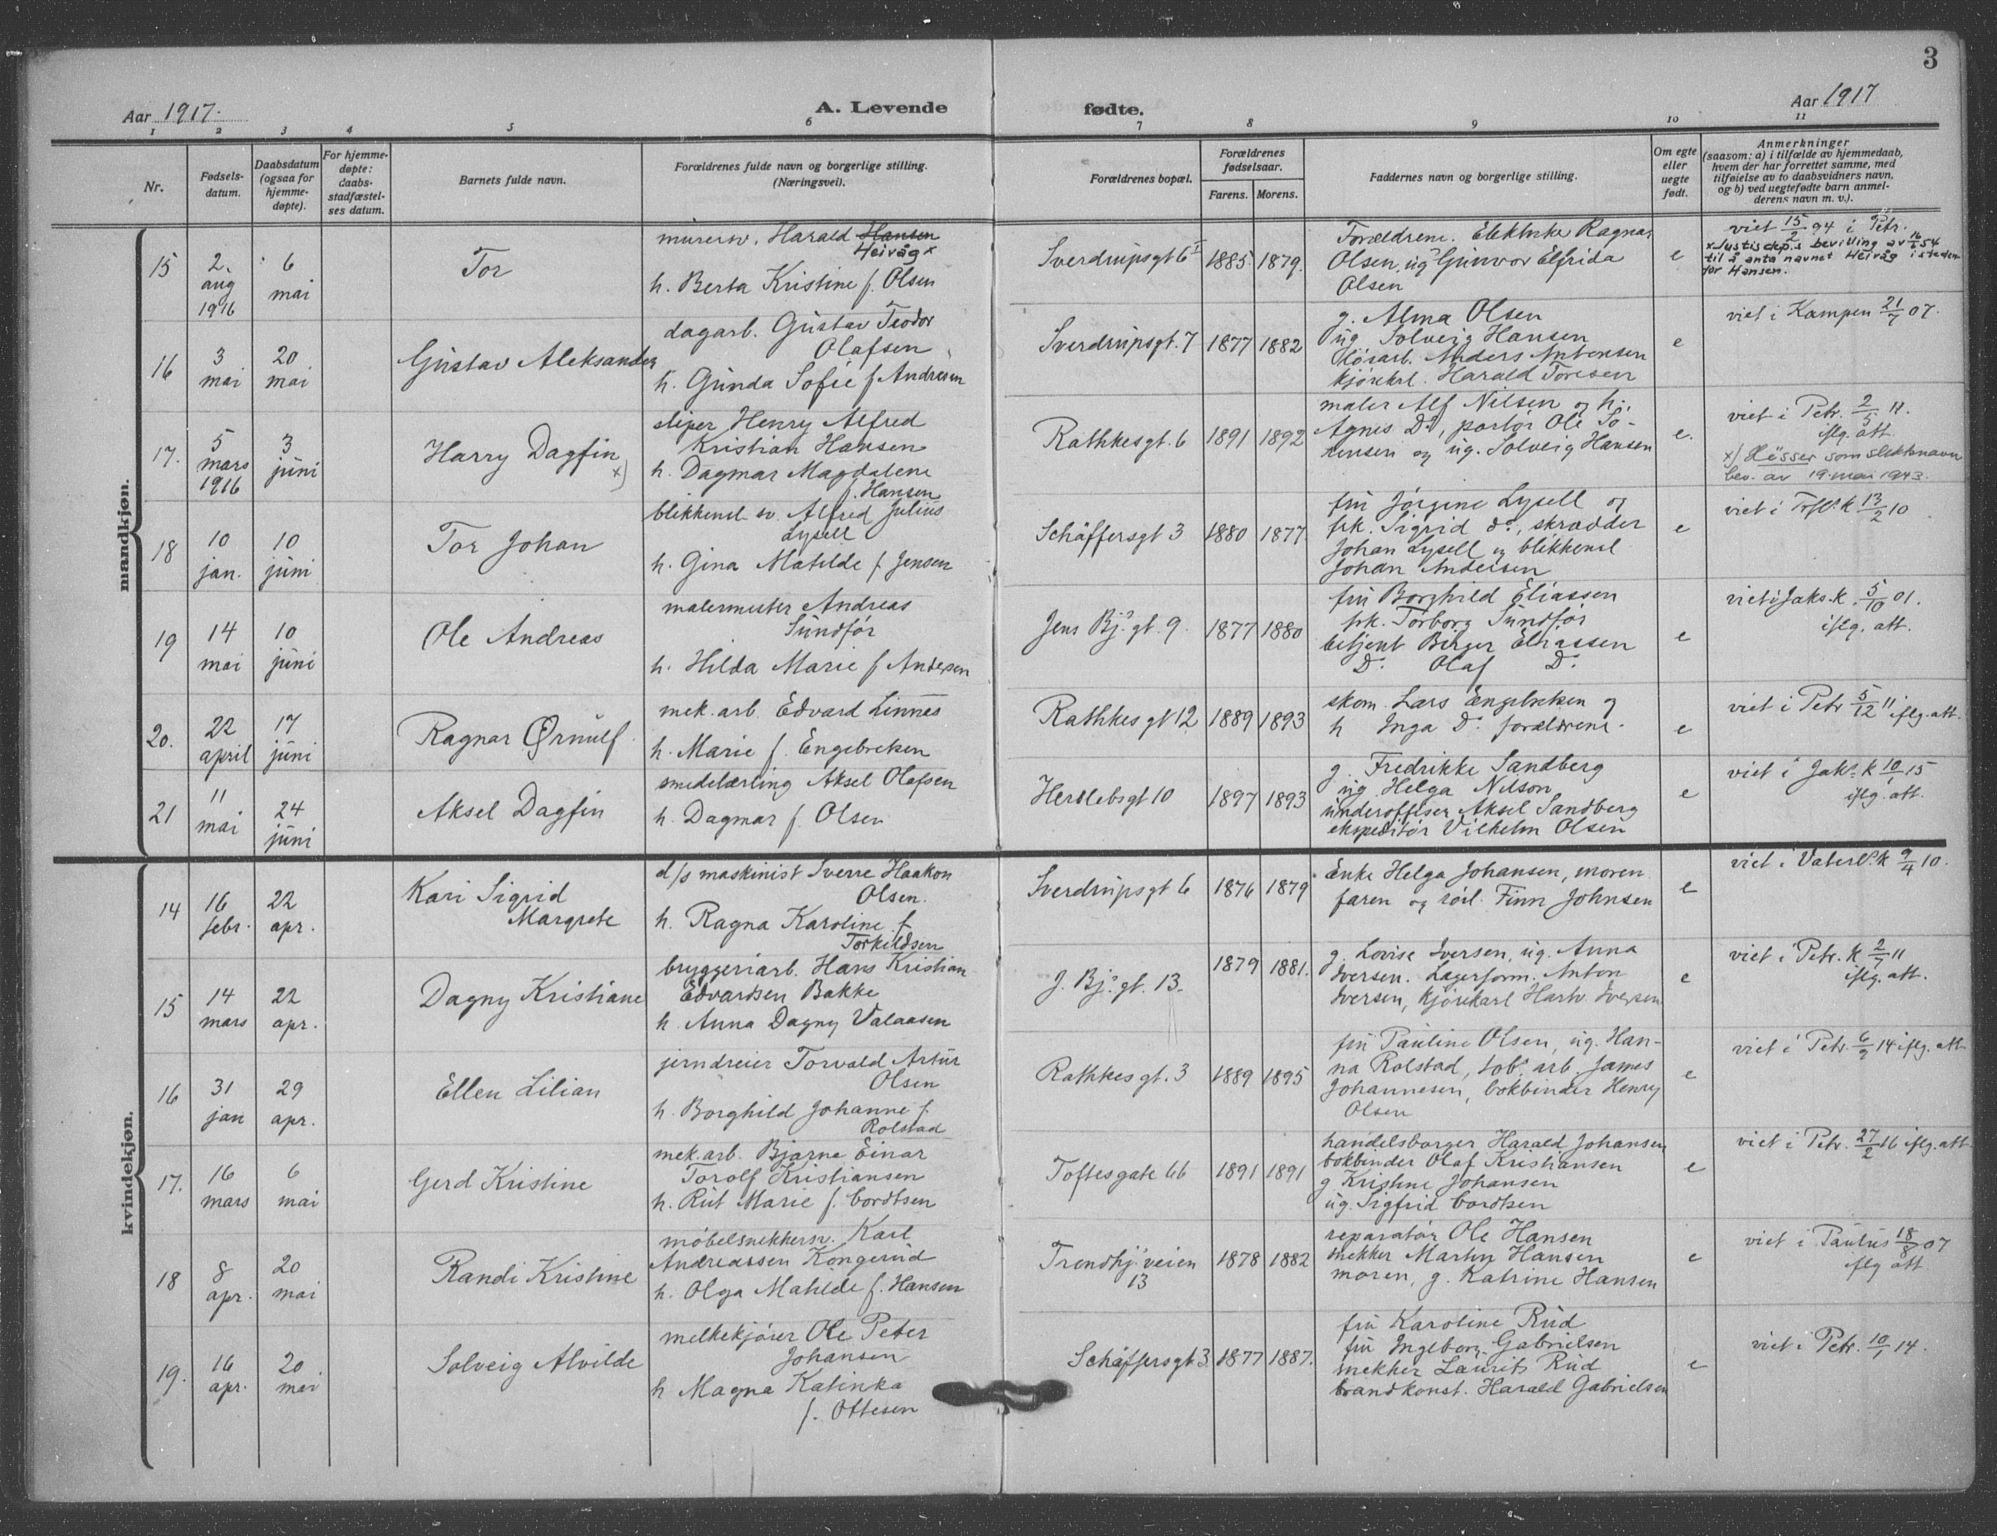 3
Aar 1917.
A. Levende
fødte.
Aar 1917
1 2 3 4 5 6 7 8 9 10 11
Nr.
Fødsels-
datum.
Daabsdatum
(ogsaa for
hjemme-
døpte).
For hjemme-
døpte:
daabs-
stadfæstel-
ses datum.
Barnets fulde navn.
Forældrenes fulde navn og borgerlige stilling.
(Næringsvei).
Forældrenes bopæl.
Forældrenes
fødselsaar.
Farens. Morens.
Faddernes navn og borgerlige stilling.
Om egte
eller
uegte
født.
Anmerkninger
(saasom: a) i tilfælde av hjemmedaab,
hvem der har forrettet samme, med
tilføielse av to daabsvidners navn,
og b) ved uegtefødte barn anmel-
derens navn m. v.).
mandkjøn.
15
2.
aug
1916
6
mai
Tor
murersv. Harald Hansen
Heivåg x
h. Berta Kristine f. Olsen
Sverdrupsgt 6 I
1885. 1879.
Forældrene. Elektrike Ragnar
Olsen, ug Gunvor Elfrida
Olsen
e
viet 15/2 94 i Petr.
x Justisdep.s bevilling av 16/6 54
til å anta navnet Heivåg i steden
for Hansen.
16
3
mai
20
mai
Gustav Aleksander
dagarb. Gustav Teodor
Olafsen
h. Gunda Sofie f Andresen
Sverdrupsgt. 7
1877 1882
g. Alma Olsen
ug Solveig Hansen
Anders Antonsen
kjørekrl. Harald Toresen
e
viet i Kampen 21/7 07.
17.
5
mars
1916
3
juni
Harry Dagfin x)
sliper Henry Alfred
Kristian Hansen
h. Dagmar Magdalene
f. Hansen
Rathkesgt. 6
1891 1892
maler Alf Nilsen og h.
Agnes Do, portør Ole So-
rensen og ug. Solveig Hansen
e.
viet i Petr. 2/5 11.
iflg. att.
x) Hösser som slektsnavn
bev. av 19. mai 1943.
18
10
jan.
10
juni
Tor Johan
blikkensl. sv. Alfred Julius
Lysell
h. Gina Matilde f Jensen
Schäffersgt 3
1880 1877.
fru Jørgine Lysell og
frk. Sigrid do, skrædder
Johan Lysell og blikkensl
Johan Andersen
e
viet i Trefl. k 13/2 10
19
14
mai
10
juni
Ole Andreas
malermester Andreas
Sundför
h. Hilda Marie f Andersen
Jens Bj.s gt. 9.
1877 1880
fru Borghild Eliassen
frk. Torborg Sundför
betjent Birger Eliassen
Do Olaf Do
e
viet i Jaks. k. 5/10 01.
iflg. att.
20.
22
april
17
juni
Ragnar Ørnulf
mek. arb. Edvard Linnes
h. Marie f. Engebretsen
Rathkesgt 12
1889 1893
skom. Lars Engebretsen og
h Inga Do forældrene.
e
viet i Petr 5/12 11 iflg. att.
21
11
mai
24
juni
Aksel Dagfin
smedelærling Aksel Olafsen
h. Dagmar f. Olsen
Herslebsgt 10
1897 1893
g. Fredrikke Sandberg
ug Helga Nilson
underoffiser Aksel Sandberg
ekspeditør Vilhelm Olsen
e
viet i Jaks. k 10/1 15
iflg. att.
kvindekjøn.
14
16
febr.
22
apr.
Kari Sigrid
Margrete
d/s maskinist Sverre Haakon
Olsen.
h. Ragna Karoline f.
Torkildsen
Sverdrupsgt 6
1876 1879
Enke Helga Johansen, moren
faren og Finn Johnsen
e
viet i Vaterl. k 9/4 10.
15
14
mars
22
apr.
Dagny Kristiane
bryggeriarb. Hans Kristian
Edvardsen Bakke
h. Anna Dagny Valaasen
J. Bj.s gt. 13.
1879 1881.
g. Lovise Iversen, ug. Anna
Iversen. Lagerform. Anton
Iversen, kjørekarl Hartv. Iversen
e
viet i Petr. k 2/7 11
iflg. att.
16
31
jan
29
apr.
Ellen Lilian
jerndreier Torvald Artur
Olsen
h. Borghild Johanne f.
Rolstad
Rathkesgt. 3
1889 1895
fru Pauline Olsen, ug. Han-
na Rolstad, tobs. arb. James
Johannesen, bokbinder Henry
Olsen
e
viet i Petr. 6/9 14 iflg. att
17.
16
mars
6
mai
Gerd Kristine
mek. arb. Bjarne Einar
Torolf Kristiansen
h. Rut Marie f. Cordtsen
Toftesgate 66
1891 1891
handelsborger Harald Johansen
bokbinder Olaf Kristiansen
g Kristine Johansen
ug. Sigfrid Cordtsen
e
viet i Petr. 27/2 16 iflg. att
18
8
apr.
20
mai
Randi Kristine
møbelsnekkersv. Karl
Andreassen Kongerud
h. Olga Matilde f. Hansen
Trondhj.veien
13
1878 1882
reparatør Ole Hansen
snekker Martin Hansen
moren, g. Katrine Hansen
e
viet i Paulus 18/8 07
iflg att.
19.
16
apr.
20
mai
Solveig Alvilde
melkekjører Ole Peter
Johansen
h Magna Katinka
f. Ottesen
Schäffersgt 3
1877 1887.
fru Karoline Rud
fru Ingeborg Gabrielsen
snekker Laurits Rud
brandkonst. Harald Gabrielsen
e
viet i Petr. 10/1 14.